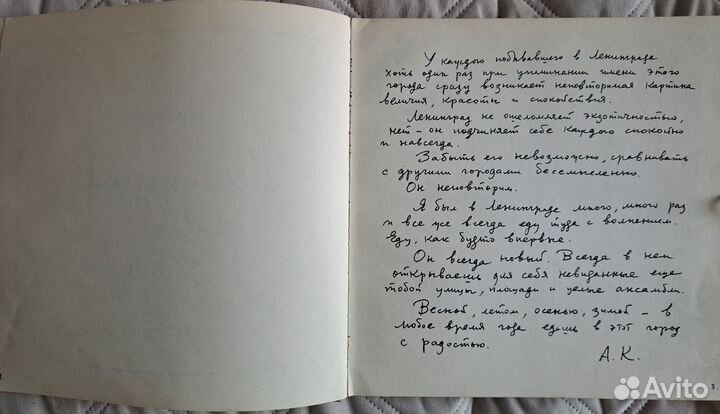 У каждого побывавшего в Ленинграде
хоть один раз при упоминании имени этого
города сразу возникает неповторимая картина
величия, красоты и спокойствия.
Ленинград не ошеломляет экзотичностью,
нет – он подчиняет себе каждого спокойно
и навсегда.
Забыть его невозможно, сравнивать
с другими городами бессмысленно.
Он неповторим.
Я был в Ленинграде много, много раз
и все же всегда еду туда с волнением.
Еду, как будто впервые.
Он всегда новый. Всегда в нем
открываешь для себя невиданные еще
тобой улицы, площади и целые ансамбли.
Весной, летом, осенью, зимой – в
любое время года едешь в этот город
с радостью.
А. К.
3
Avito